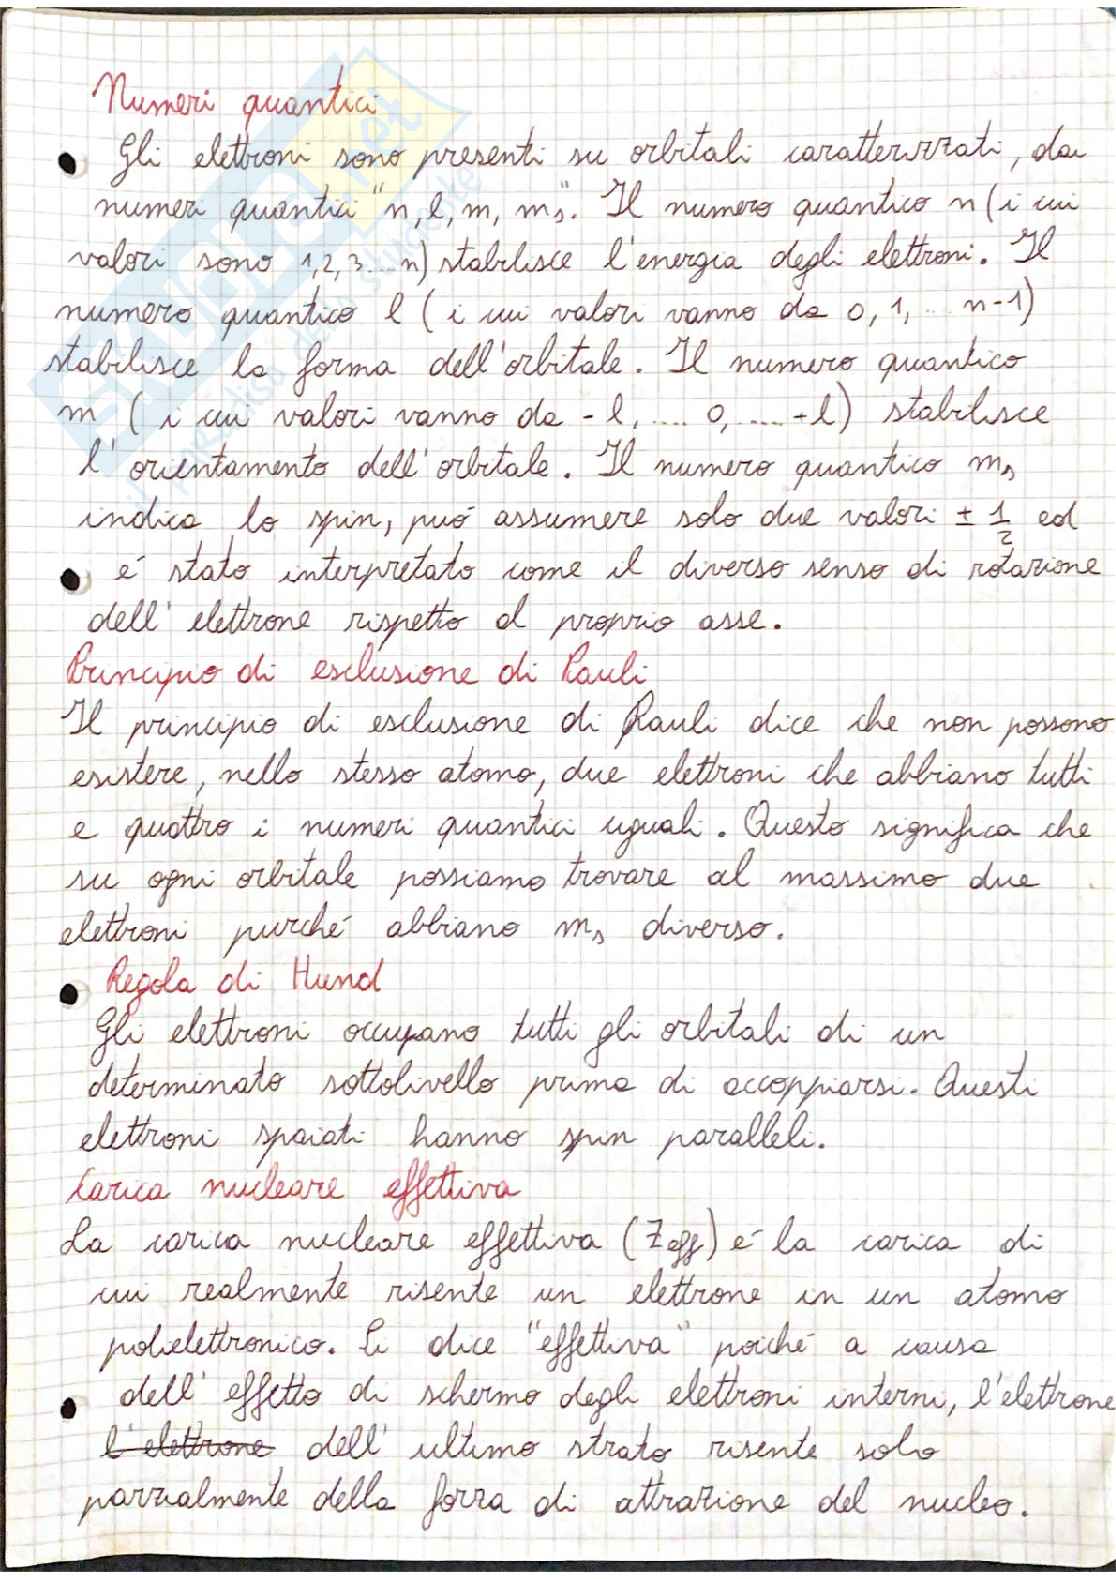 Numeri quantici
Gli elettroni sono presenti su orbitali caratterizzati, dai
numeri quantici "n, l, m, ms". Il numero quantico n (i cui
valori sono 1, 2, 3 .... n) stabilisce l'energia degli elettroni. Il
numero quantico l ( i cui valori vanno da 0, 1, ... n-1)
stabilisce la forma dell'orbitale. Il numero quantico
m ( i cui valori vanno da - l, .... 0, ..... +l) stabilisce
l'orientamento dell'orbitale. Il numero quantico ms
indica lo spin, puó assumere solo due valori ± 1/2 ed
é stato interpretato come il diverso senso di rotazione
dell'elettrone rispetto al proprio asse.
Principio di esclusione di Pauli
Il principio di esclusione di Pauli dice che non possono
esistere, nello stesso atomo, due elettroni che abbiano tutti
e quattro i numeri quantici uguali. Questo significa che
su ogni orbitale possiamo trovare al massimo due
elettroni purché abbiano ms diverso.
Regola di Hund
Gli elettroni occupano tutti gli orbitali di un
determinato sottolivello prima di accoppiarsi. Questi
elettroni spaiati hanno spin paralleli.
Carica nucleare effettiva
La carica nucleare effettiva (Zeff) é la carica di
cui realmente risente un elettrone in un atomo
polielettronico. Si dice "effettiva" poiché a causa
dell'effetto di schermo degli elettroni interni, l'elettrone
l'elettrone dell'ultimo strato risente solo
parzialmente della forza di attrazione del nucleo.